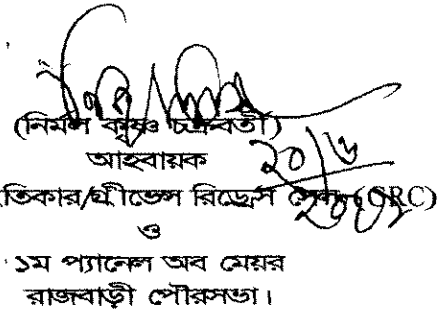 (নির্মল কৃষ্ণ চক্রবর্তী)
আহবায়ক
২০/৬
তিকার/গ্রীভেন্স রিড্রেস সেল (GRC)
ও
১ম প্যানেল অব মেয়র
রাজবাড়ী পৌরসভা।